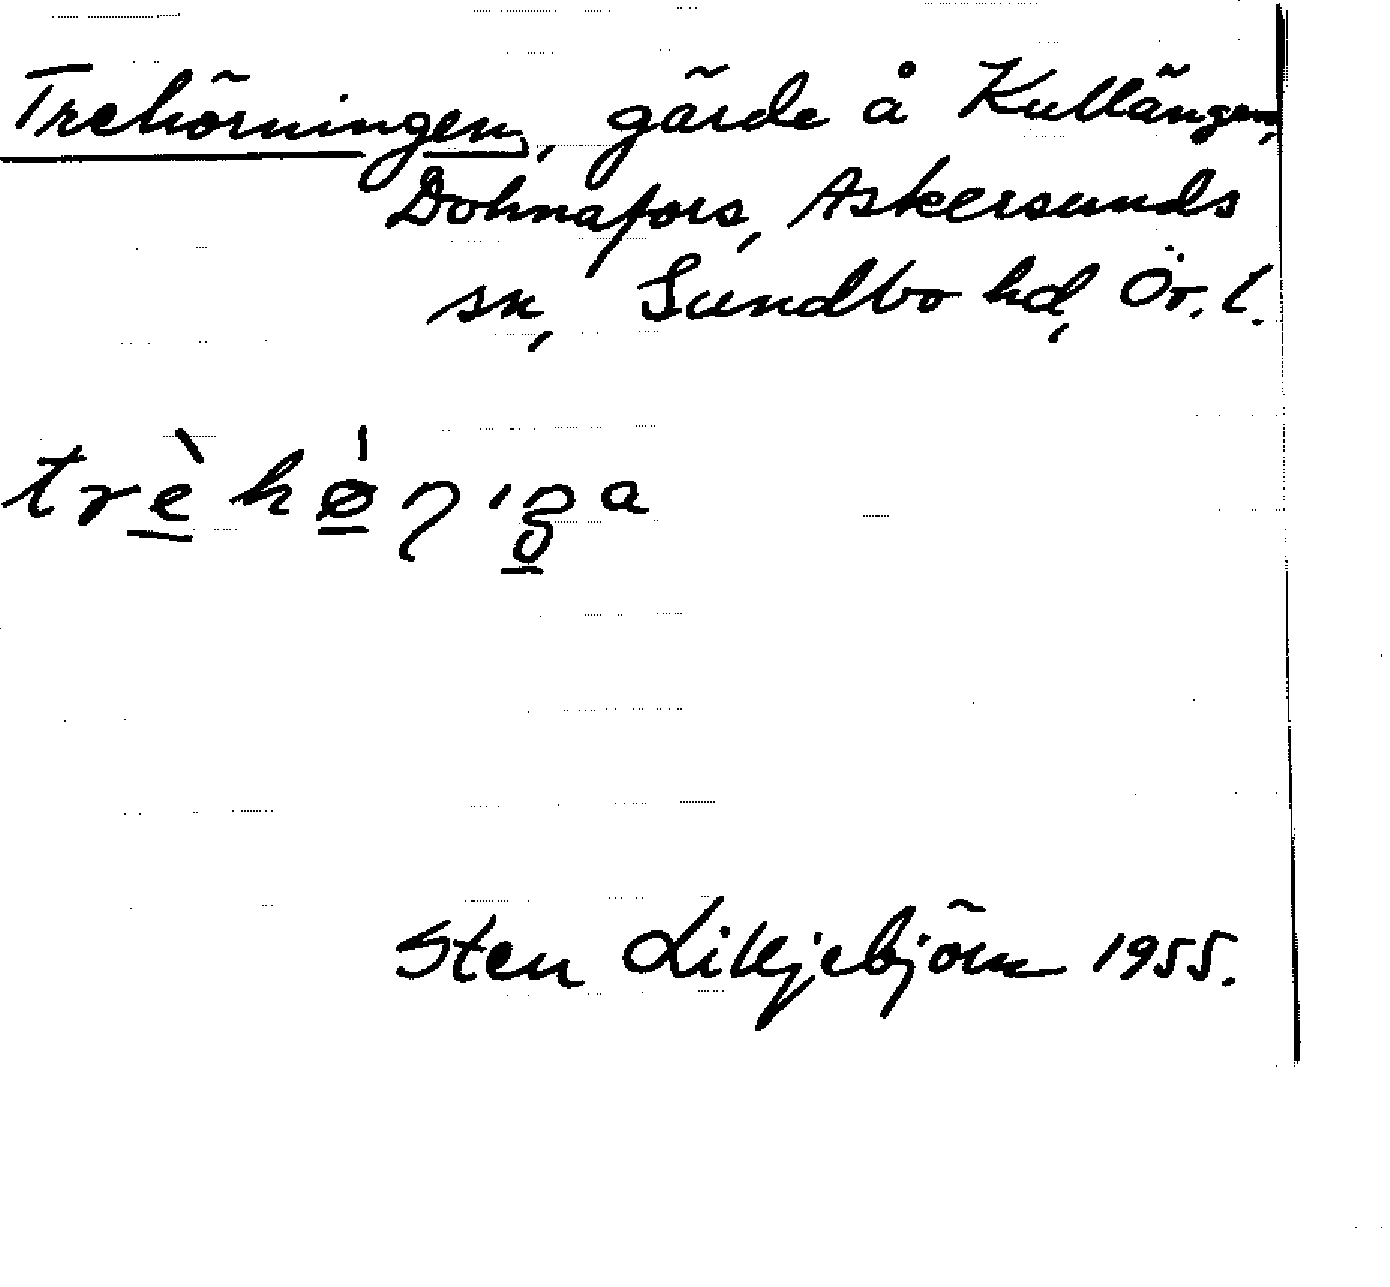 Trehörningen, gärde å Kullängen,
Dohnafors, Askersunds
sn, Sundbo hd, Ör. l.
trèhǿɳiŋa
Sten Lilljebjörn 1955.